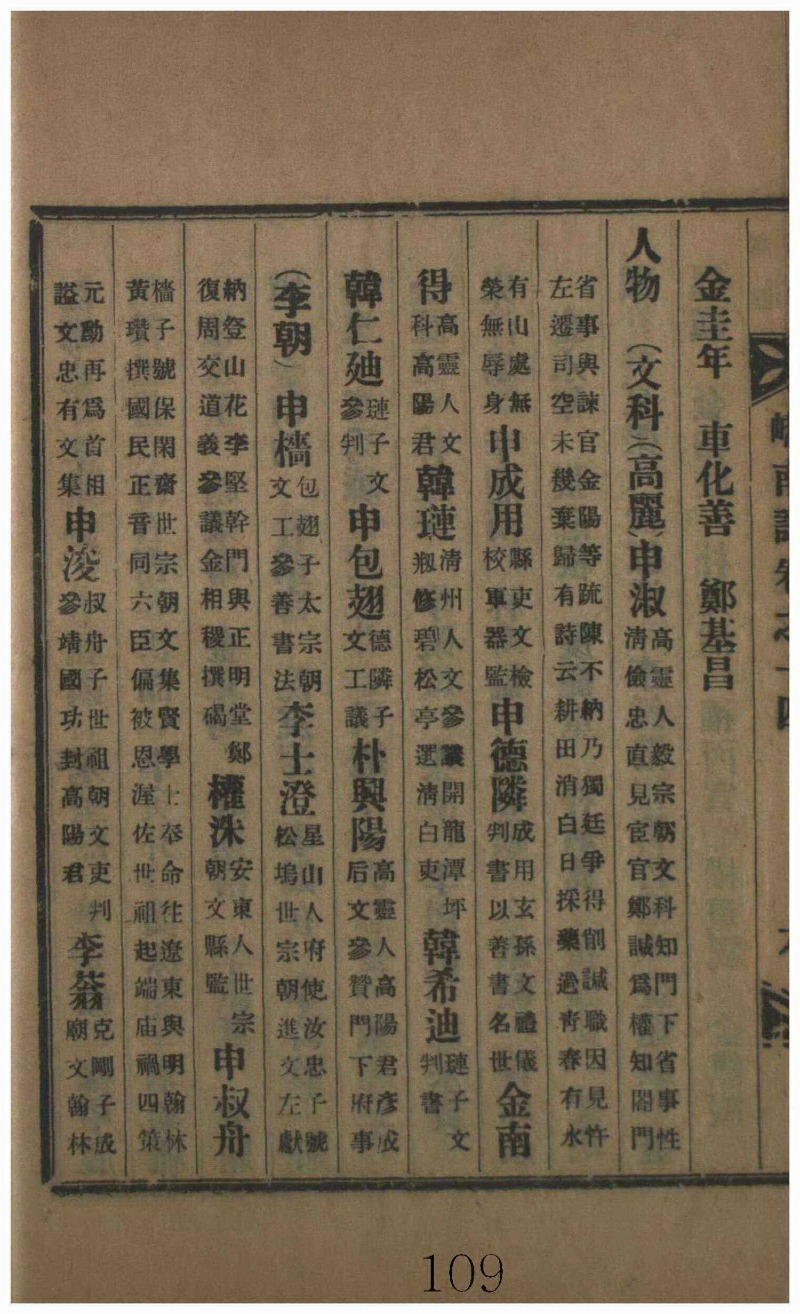 金圭年 車化善 鄭基昌
人物 (文科)(高麗)申淑 高靈人毅宗朝文科知門下省事性
清儉忠直見宦官鄭誠爲權知閤門
省事與諫官金陽等疏陳不納乃獨廷爭得削誠職因見忤
左遷司空未幾棄歸有詩云耕田消白日採藥過靑春有水
有山處無
榮無辱身 申成用 縣吏文檢
校軍器監 申德隣 成用玄孫文禮儀
判書以善書名世 金南
得 高靈人文
科高陽君 韓璉 清州人文參議開龍潭坪
刱修碧松亭選淸白吏 韓希迪 璉子文
判書
韓仁廸 璉子文
參判 申包翅 德隣子
文工議 朴興陽 高靈人高陽君彥成
后文參贊門下府事
(李朝) 申檣 包翅子太宗朝
文工參善書法 李士澄 星山人府使汝忠子號
松塢世宗朝進文左獻
納登山花李堅幹門與正明堂鄭
復周交道義參議金相稷撰碣 權洙 安東人世宗
朝文縣監 申叔舟
檣子號保閑齋世宗朝文集賢學士奉命往遼東與明翰林
黃瓚撰國民正音同六臣偏被恩渥佐世祖起端庙禍四策
元勳再爲首相
謚文忠有文集 申浚 叔舟子世祖朝文吏判
參靖國功封高陽君 李蓊 克剛子成
廟文翰林
109